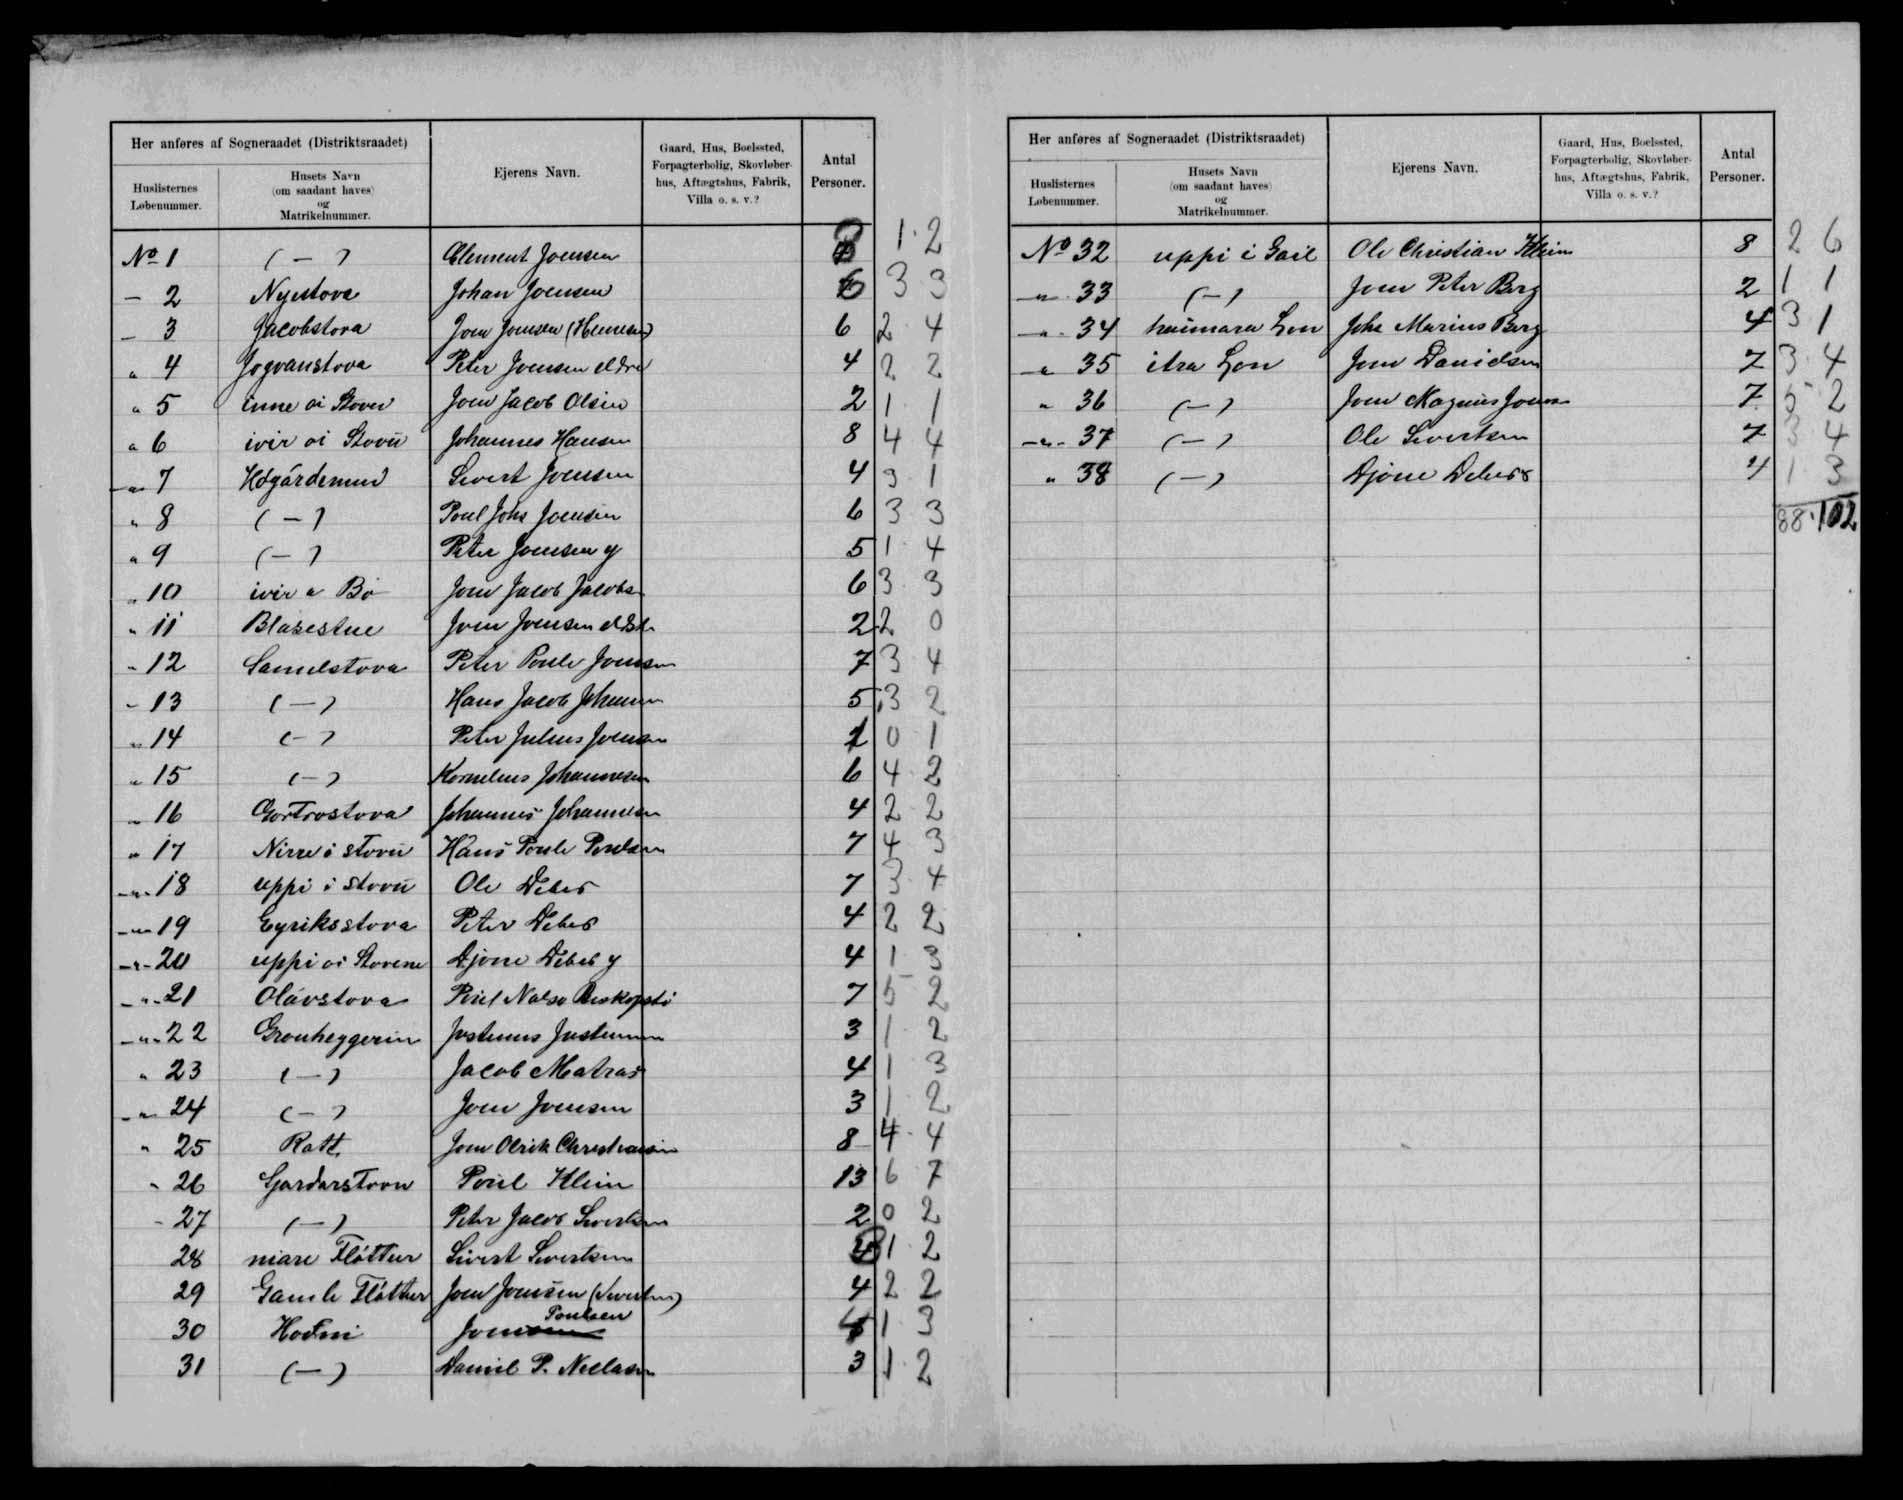 Her anføres af Sogneraadet (Distriktsraadet)
Huslisternes Løbenummer.
Husets Navn (om saadant haves) og Matrikelnummer.
Ejerens Navn.
Gaard, Hus, Boelssted, Forpagterbolig, Skovløber-hus, Aftægtshus, Fabrik, Villa o. s. v.?
Antal Personer.
No 1 (-) Clement Joensen 3 1 2
- 2 Nyestova Johan Joensen 6 3 3
- 3 Jacobstova Joen Joensen 6 2 4
" 4 Jogvanstova Peter Joensen eldre 4 2 2
" 5 inne oi Stovu Joen Jacob Olsen 2 1 1
" 6 ivir oi Stovu Johannes Hansen 8 4 4
" 7 Høgárdemun Sivert Joensen 4 3 1
" 8 (-) Poul Johs Joensen 6 3 3
" 9 (-) Peter Joensen y 5 1 4
" 10 ivir a Bø Joen Jacob Jacobsen 6 3 3
" 11 Blasestue Joen Joensen eldste 2 2 0
" 12 Samelstova Peter Poule Joensen 7 3 4
" 13 (-) Hans Jacob Johansen 5 3 2
" 14 (-) Peter Julius Joensen 1 0 1
" 15 (-) Kornelius Johannesen 6 4 2
" 16 Gortrostova Johannes Johannesen 4 2 2
" 17 Nirre i stovu Hans Poule Poulsen 7 4 3
" 18 uppi i stovu Ole Debes 7 3 4
" 19 Eyriksstova Peter Debes 4 2 2
" 20 uppi oi Stovene Djone Debes y 4 1 3
" 21 Olávstova Poul Nolsø Biskopstø 7 5 2
" 22 Grouheyggerin Justinus Justinussen 3 1 2
" 23 (-) Jacob Matras 4 1 3
" 24 (-) Joen Joensen 3 1 2
" 25 Rátt Joen Olrik Christiansen 8 4 4
" 26 Gardarstovu Poul Klein 13 6 7
" 27 (-) Peter Jacob Sivertsen 2 0 2
28 niare Fløttur Sivert Sivertsen 3 1 2
29 Gamle Fløttur Joen Joensen (Sivertsen) 4 2 2
30 Hodni Joen Poulsen 4 1 3
31 (-) Daniel P. Nielasen 3 1 2
Her anføres af Sogneraadet (Distriktsraadet)
Huslisternes Løbenummer.
Husets Navn (om saadant haves) og Matrikelnummer.
Ejerens Navn.
Gaard, Hus, Boelssted, Forpagterbolig, Skovløber-hus, Aftægtshus, Fabrik, Villa o. s. v.?
Antal Personer.
No 32 uppi i Gail Ole Christian Klein 8 2 6
" 33 (-) Joen Peter Berg 2 1 1
" 34 heimara Lon Johs Marius Berg 4 3 1
" 35 itra Lon Joen Danielsen 7 3 4
" 36 (-) Joen Magnus Joensen 7 5 2
" 37 (-) Ole Sivertsen 7 3 4
" 38 (-) Djone Debes 4 1 3
88 102